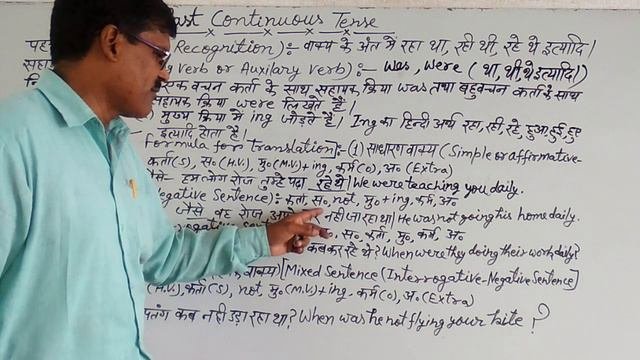 ast Continuous Tense
पह Recognition):- वाक्य के अंत में रहा था, रही थी, रहे थे इत्यादि।
सहा verb or Auxilary verb):- was, were (था, थी, थे इत्यादि।)
वचन कर्ता के साथ सहायक क्रिया was तथा बहुवचन कर्ता के साथ
सहायक क्रिया were लिखते हैं।
मुख्य क्रिया में ing जोड़ते हैं। Ing का हिन्दी अर्थ रहा, रही, रहे, हुआ, हुई, हुए
इत्यादि होता है।
Formula for Translation]:- (1) साधारण वाक्य (Simple or affirmative-
कर्ता(S), स०(H.V.), मु०(M.V.)+ing, कर्म(O), अ०(Extra)
जैसे- हमलोग रोज तुम्हें पढ़ा रहे थे। We were teaching you daily.
Negative Sentence): कर्ता, स०, not, मु०+ing, कर्म, अ०
जैसे वह रोज नहीं जा रहा था। He was not going his home daily.
स०, कर्ता, मु०, कर्म, अ०
कब कर रहे थे? When were they doing their work daily?
वाक्य] [Mixed Sentence (Interrogative-Negative Sentence]
(H.V.), कर्ता(S), not, मु०(M.V.)+ing, कर्म(O), अ०(Extra)
पतंग कब नहीं उड़ा रहा था? When was he not flying your kite?